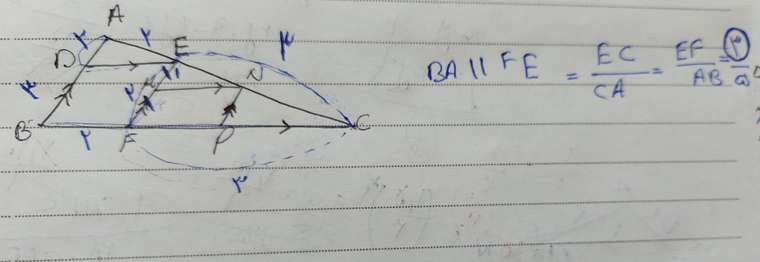 A
۲ ۲
D E ۳
۳ ۳ M N
B ۲ F P C
۳
BA || FE = EC/CA = EF/AB = ۳/۵